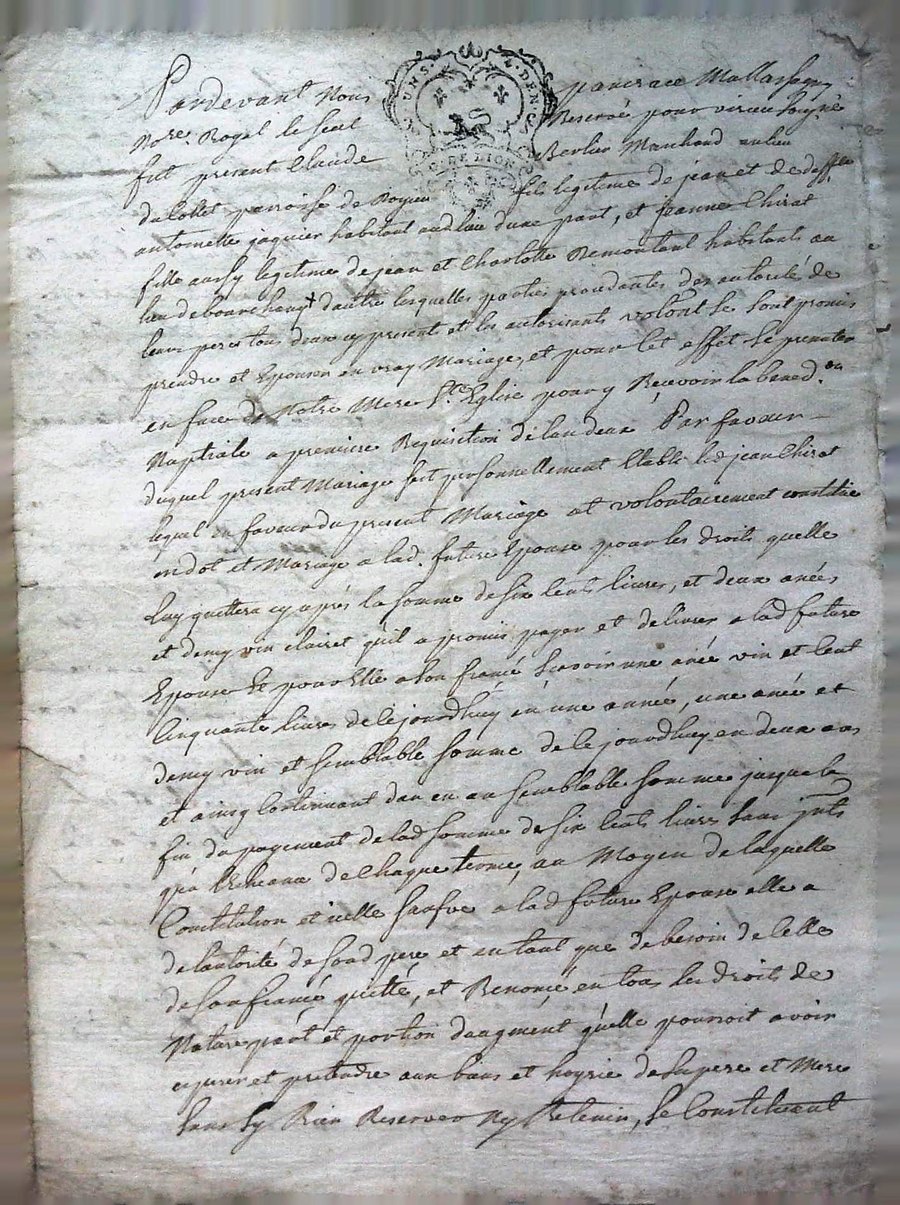 Pardevant Nous pancrace Mallassagny
No.re Royal Reservé pour virieu soigné
fut present Claude Berlier Marchand au lieu
du Collet parroisse de fils legitime de jean et de deff.te
antoinette jaquier habitant aud. lieu dune part, et jeanne Chirat
fille aussy legitime de jean et Charlotte Remontant habitants au
lieu de dautre lesquelles parties procedantes des autorités de
leurs peres tous deux cy present et les autorisants volont. se sont promis
prendre et Epouser en vray Mariage, et pour cet effet se presenter
en face de Notre Mere S.te Eglise pour y Recevoir la bened.on
Nuptiale a premiere Requisition de lun deux Par faveur
duquel present Mariage sest personnellement Etabli led. jean Chirat
lequel en faveur du present Mariage at volontairement constitué
en dot et Mariage a lad. future Epouse pour les droits quelle
luy quittera cy aprés la somme de six cents livres, et deux anées
et demy vin clairet qu'il a promis payer et delivrer a lad future
Epouse Se pour Elle a son fiancé sçavoir une anée vin et Cent
Cinquante livres de ce jourdhuy en une année, une anée et
demy vin et semblable somme de ce jourdhuy en deux ans
et ainsy Continuant dan en an semblable somme jusque la
fin du payement de lad somme de six Cents livres sans jnts
qua lecheance de Chaque terme, au Moyen de laquelle
Constitution et icelle sauve a lad future Epouse elle a
de lautorité de sond pere et en tant que de besoin de Celle
de son fiancé quitté, et Renoncé en tous les droits de
Nature part et portion daugment qu'elle pourroit avoir
esperer et pretendre aux biens et hoyrie de sus pere et Mere
sans sy Rien Reserver Ny Retenir, se Constituant